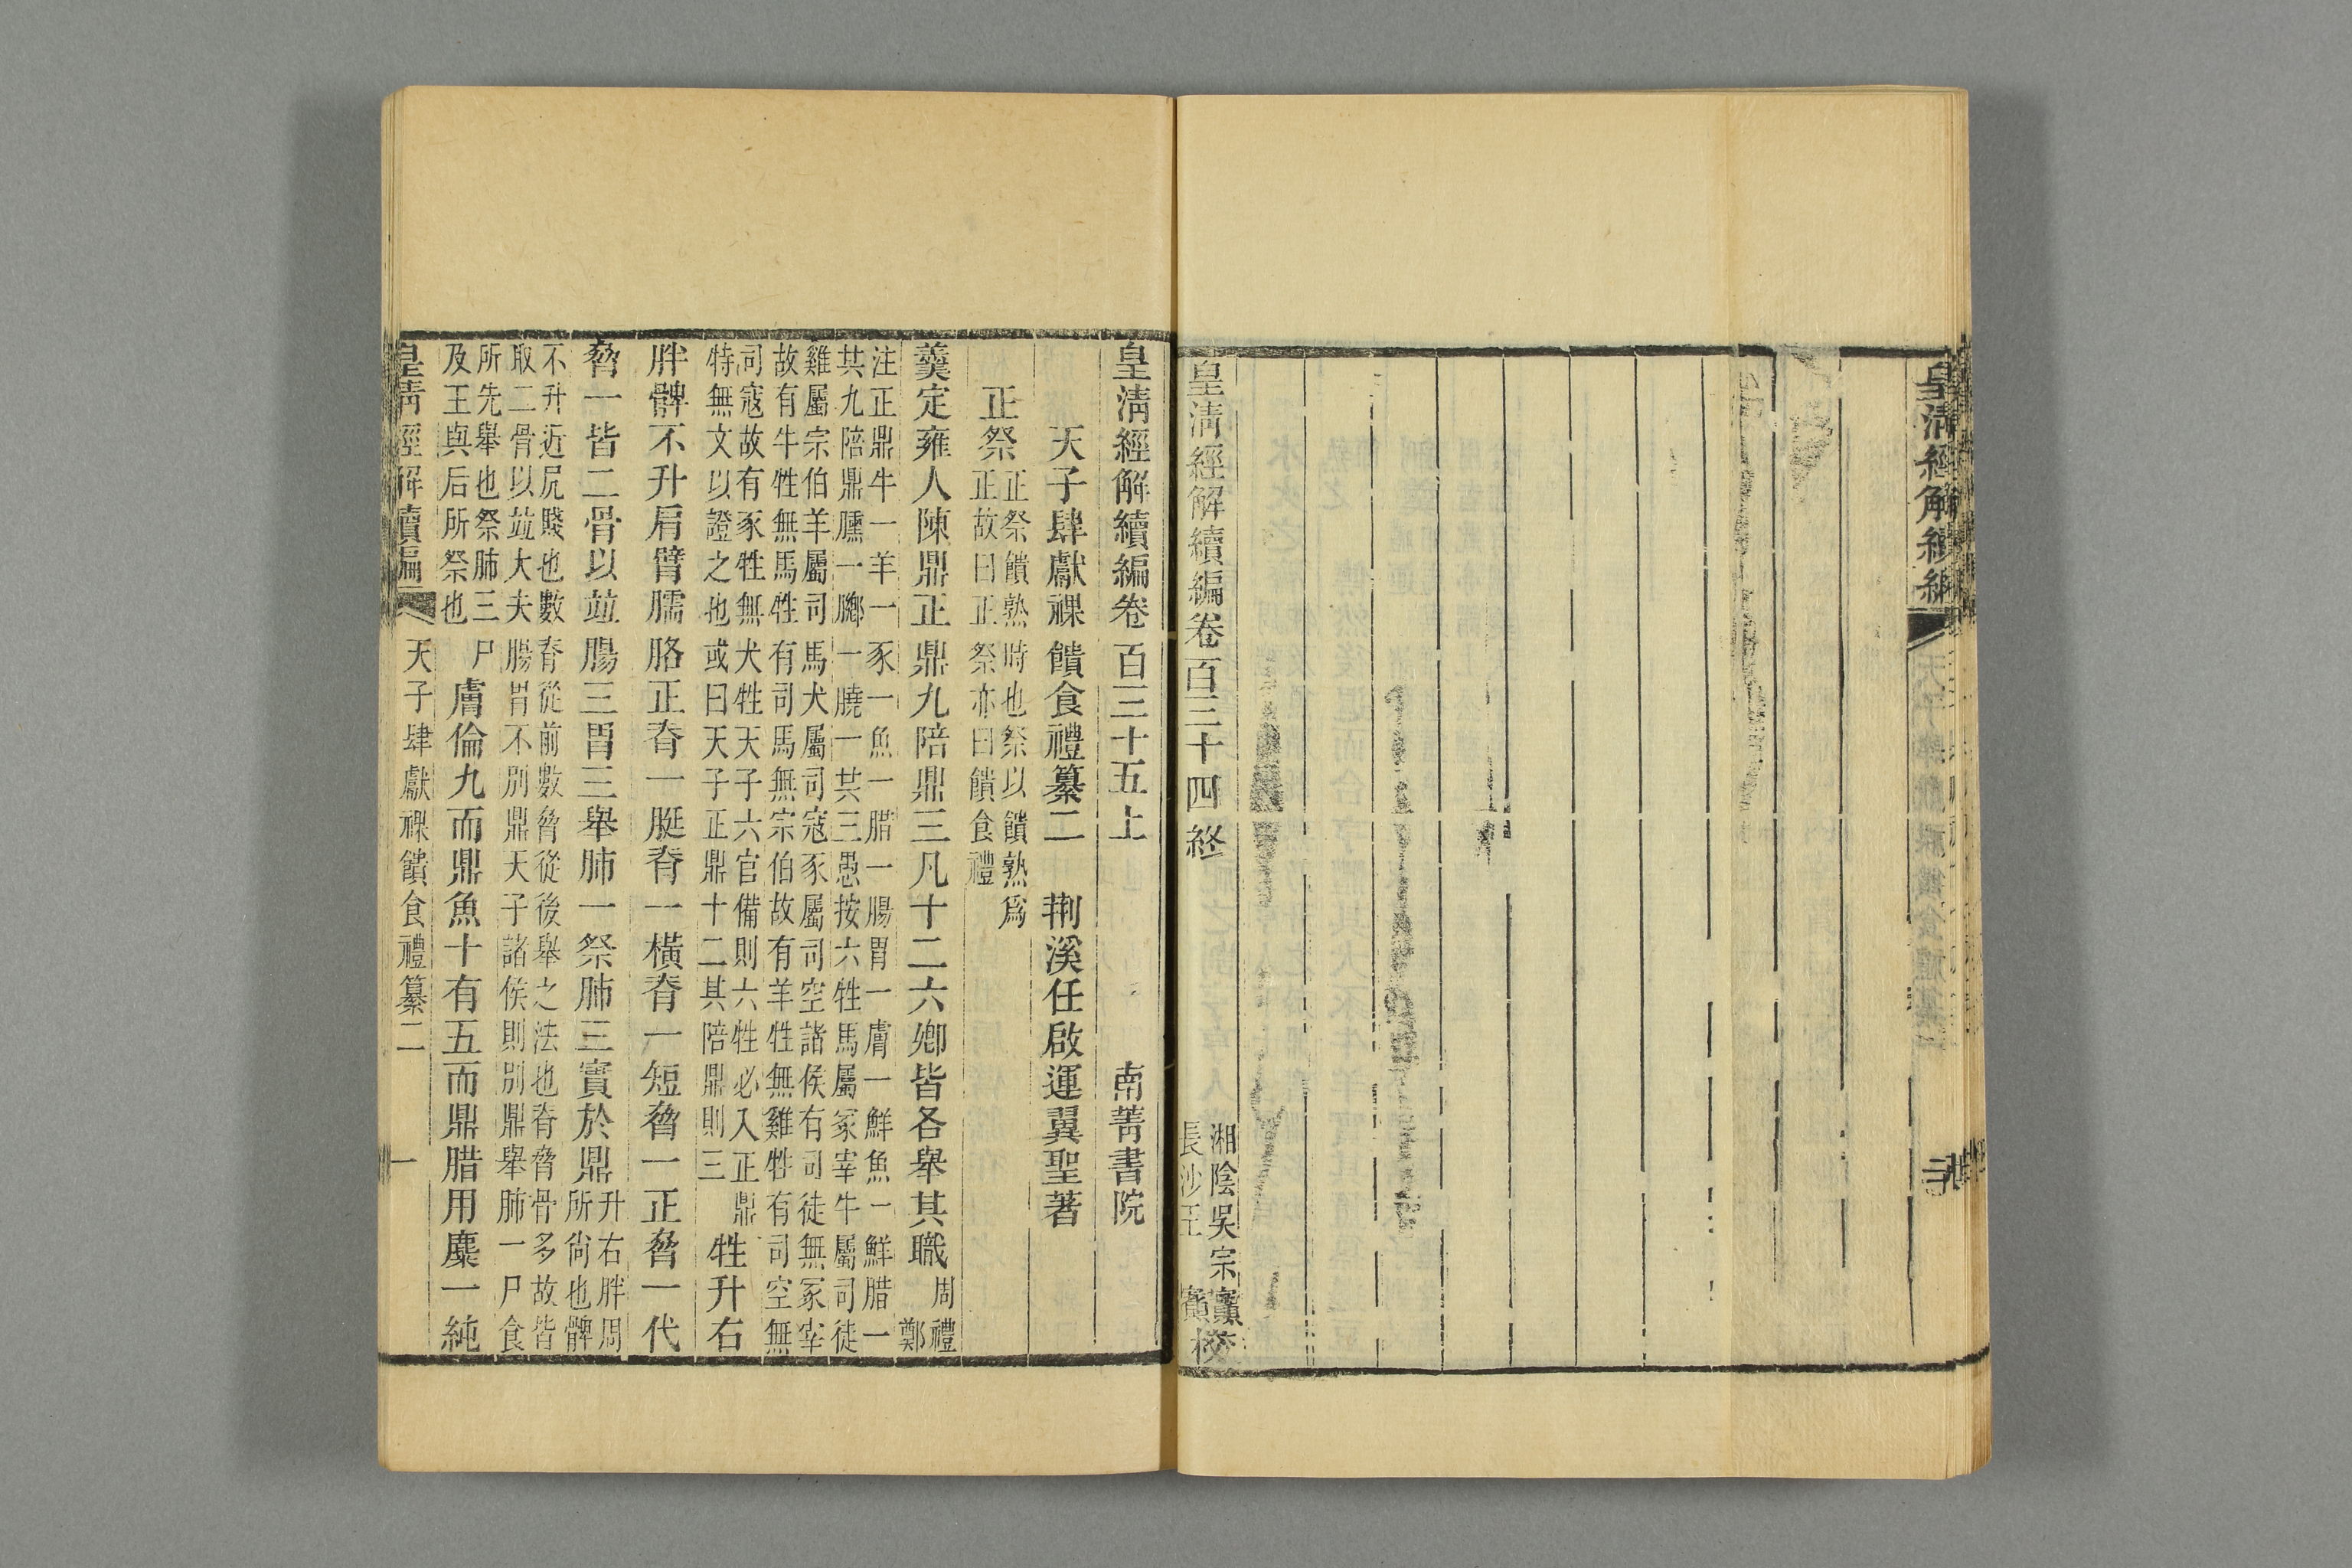 皇清經解續編
皇清經解續編卷百三十四終
湘陰吳宗
長沙王
校
皇清經解續編卷百三十五上
南菁書院
天子肆獻祼饋食禮纂二
荆溪任啟運翼聖著
正祭
正祭饋熟時也祭以饋熟爲
正故曰正祭亦曰饋食禮
羹定雍人陳鼎正鼎九陪鼎三凡十二六卿皆各舉其職
周禮
鄭
注正鼎牛一羊一豕一魚一腊一腸胃一膚一鮮魚一鮮腊一
共九陪鼎臐一膷一膮一共三愚按六牲馬屬冢宰牛屬司徒
雞屬宗伯羊屬司馬犬屬司寇豕屬司空諸侯有司徒無冢宰
故有牛牲無馬牲有司馬無宗伯故有羊牲無雞牲有司空無
司寇故有豕牲無犬牲天子六官備則六牲必入正鼎
特無文以證之也或曰天子正鼎十二其陪鼎則三
牲升右
胖髀不升肩臂臑胳正脊一脡脊一橫脊一短脅一正脅一代
脅一皆二骨以竝腸三胃三舉肺一祭肺三實於鼎
升右胖周
所尙也髀
不升近尻賤也數脊從前數脅從後舉之法也脊脅骨多故皆
取二骨以竝大夫腸胃不別鼎天子諸侯則別鼎舉肺一尸食
所先舉也祭肺三尸
及王與后所祭也
膚倫九而鼎魚十有五而鼎腊用麋一純
皇清經解續編
天子肆獻祼饋食禮纂二
一